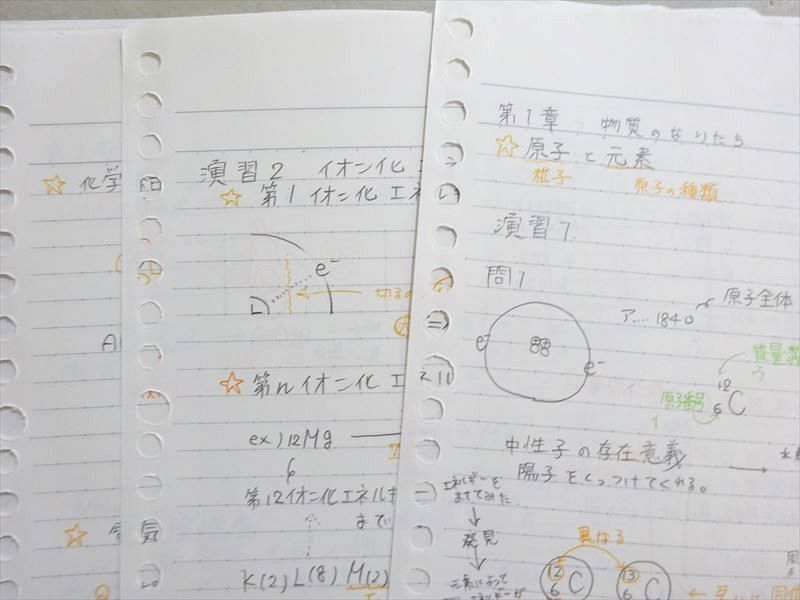 ☆ 化学
☆
演習2 イオン化エ
☆ 第1イオン化エネ
e⁻
切る
☆ 第nイオン化エネル
ex) 12Mg
第12イオン化エネルギ
まで
K(2) L(8) M(2)
第1章 物質のなりたち
☆ 原子と元素
粒子 原子の種類
演習1
問1
ア…. 1840
原子全体
e⁻
e⁻
質量数
ウ
原子番号
イ
12
6 C
中性子の存在意義
陽子をくっつけてくれる。
エネルギーを
あててみた
↓
発見
↓
元素によって
異なる
12
6 C
13
6 C